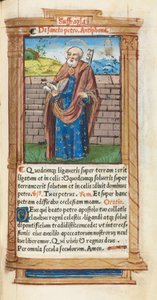 Suffragia
De sancto petro. Antiphona.
Quodcunqz ligaveris super terram erit
ligatum et in celis et Quodcunqz solveris super
terram erit solutum et in celis dixit dominus
petro. Tu es petrus. Et super hanc
petram edificabo ecclesiam meam. Oratio.
Deus qui beato petro apostolo tuo collatis
clavibus regni celestis ligandi atqz solvendi
pontificium tradidisti concede ut inter
sionis eius auxilio a peccatorum nostrorum nexi
liberemur. Qui vivis et regnas deus.
Per omnia secula seculorum. Amen.